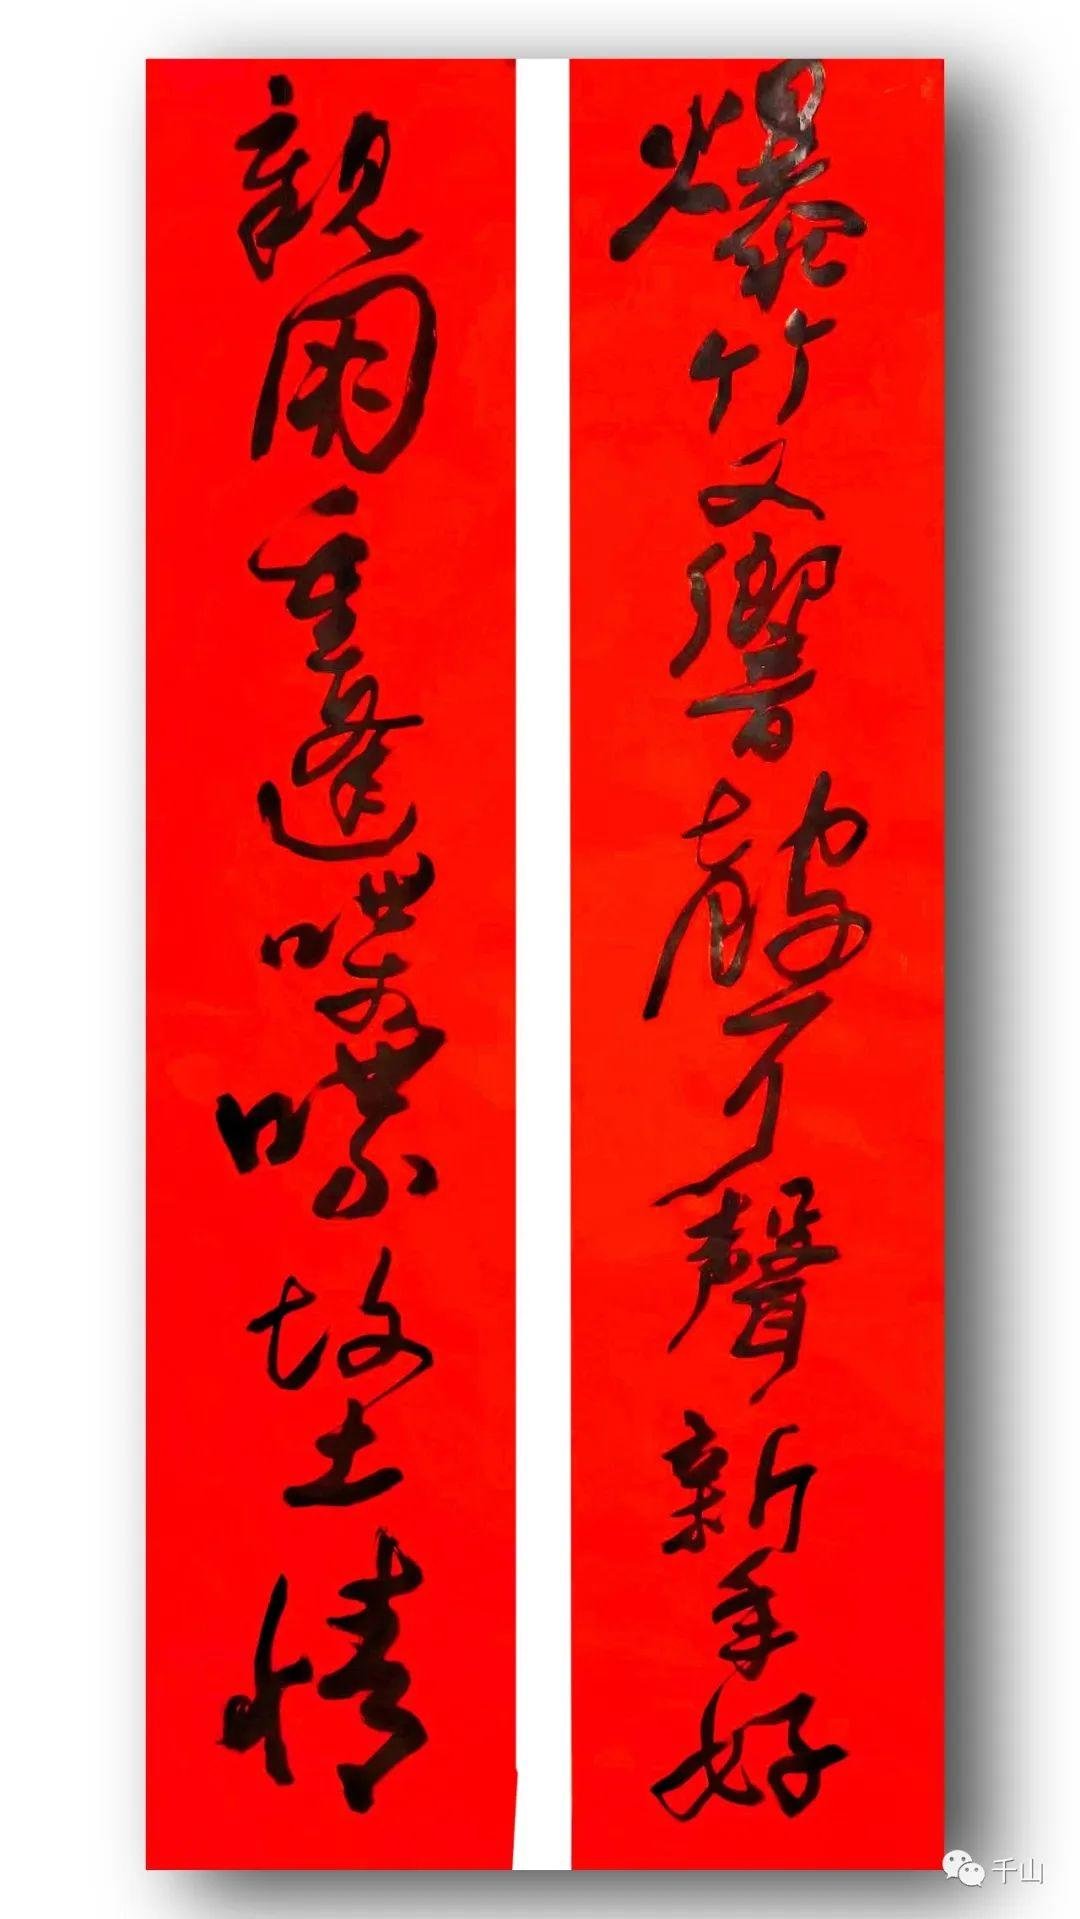 爆竹又響聲聲新年好
親朋重逢喋喋故土情
千山